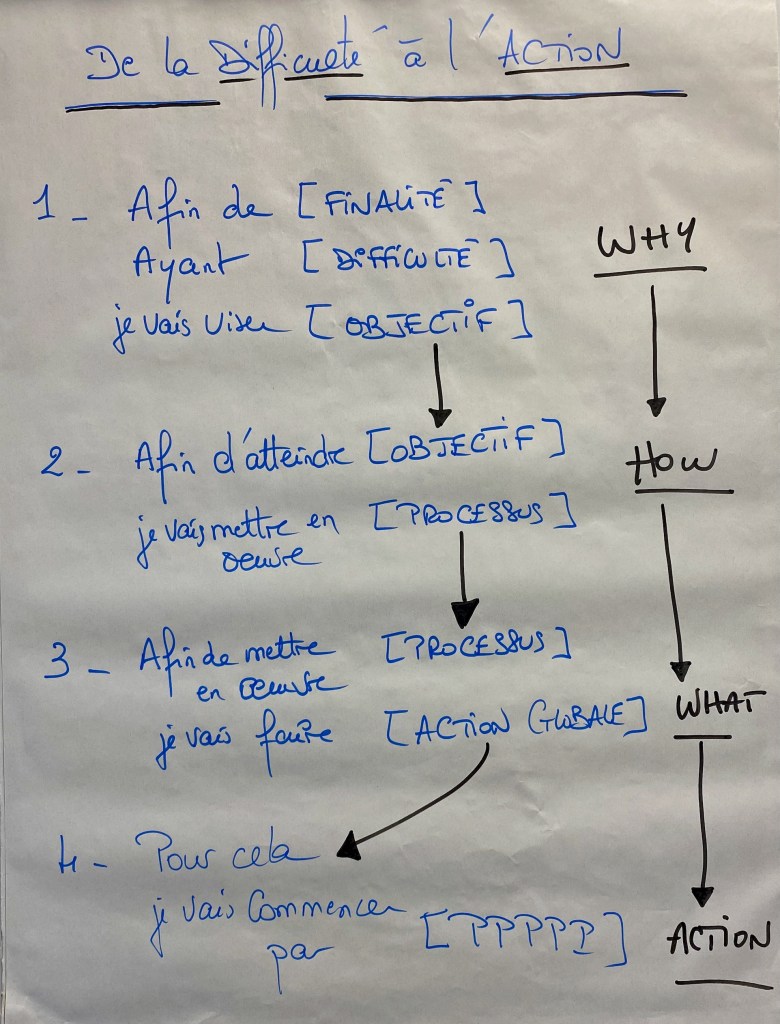 De la Difficulté à l'ACTION
1 - Afin de [FINALITÉ]
Ayant [DIFFICULTÉ]
je vais viser [OBJECTIF]
WHY
2 - Afin d'atteindre [OBJECTIF]
je vais mettre en [PROCESSUS]
oeuvre
HOW
3 - Afin de mettre [PROCESSUS]
en oeuvre
je vais faire [ACTION GLOBALE]
WHAT
4 - Pour cela
je vais Commencer
par [PPPPP]
ACTION